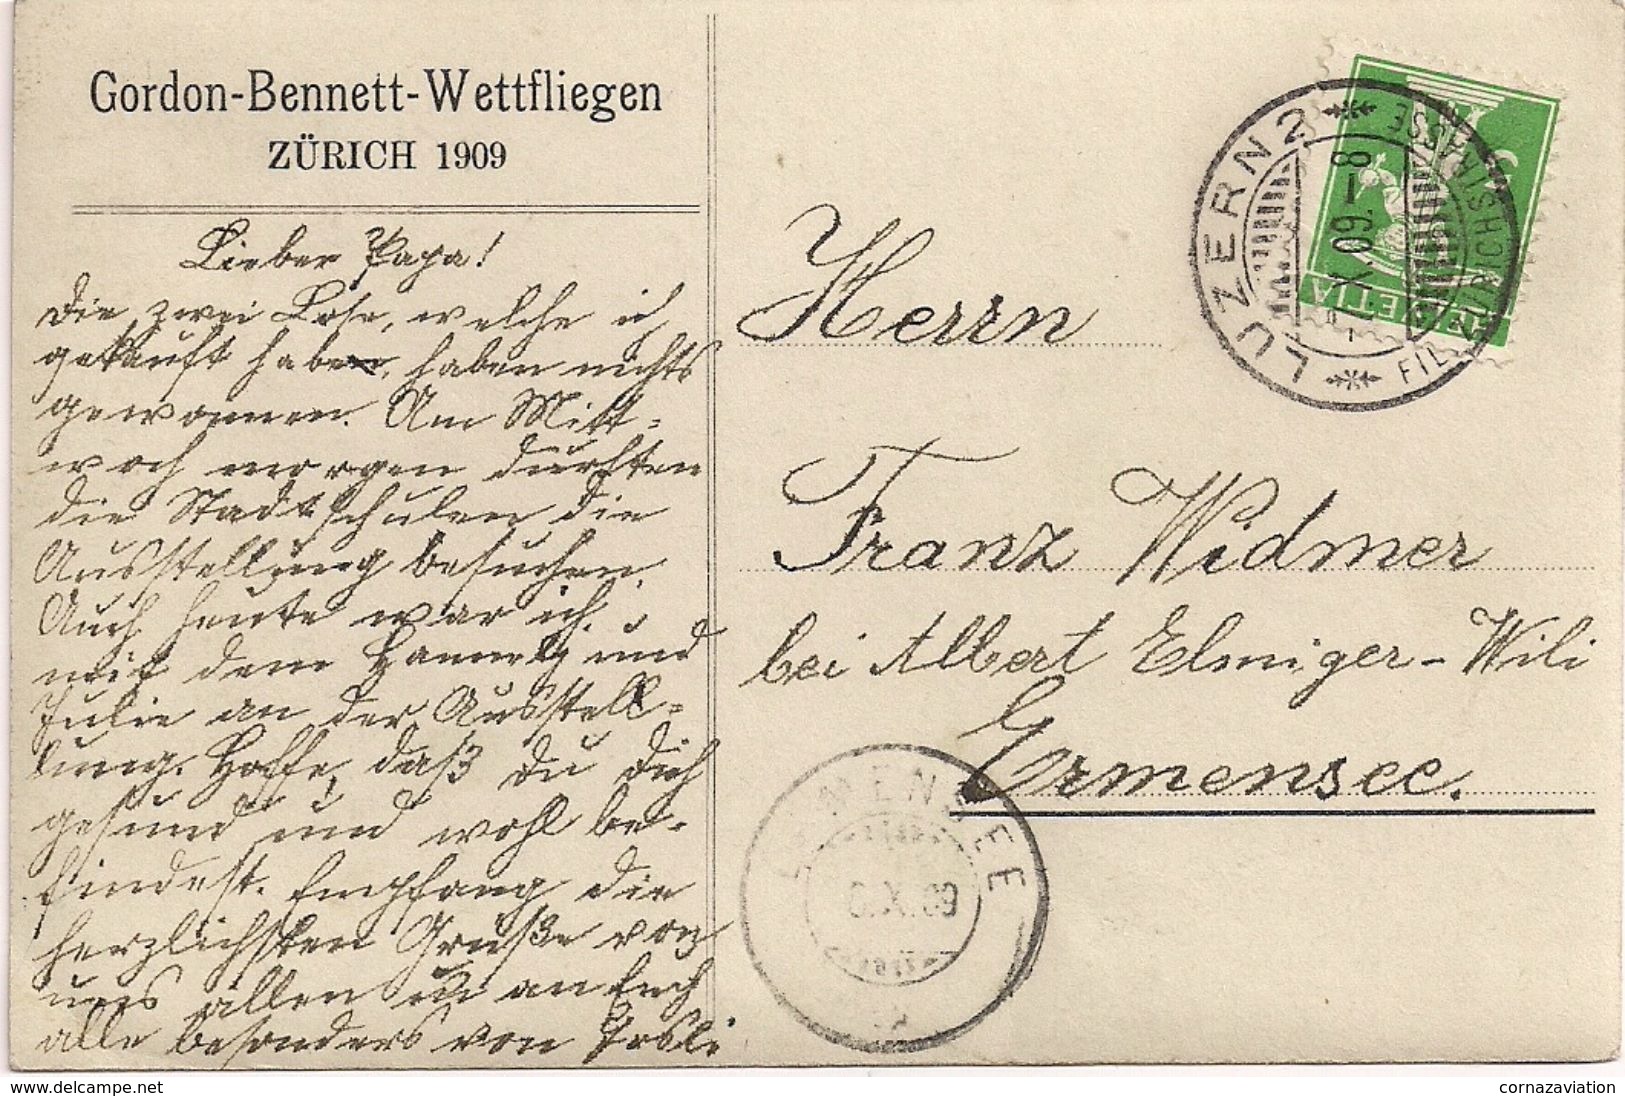 Gordon-Bennett-Wettfliegen
ZÜRICH 1909
Lieber Papa!
Die zwei Lose, welche ich
gekauft haben, haben nichts
gewonnen. Am Mitt-
woch morgen durften
die Stadtschulen die
Ausstellung besuchen.
Auch heute war ich
mit dem und
Julie an der Ausstell-
lung. Hoffe, daß Du Dich
gesund und wohl be-
findest. Empfang die
herzlichsten Grüße von
uns allen an Euch
alle besonders von
Herrn
Franz Widmer
bei Albert Elmiger-Wili
Ermensee.
LUZERN 2
FIL. ZÜRICHSTRASSE
X.09.-8
HELVETIA
ERMENSEE
X.09
delcampe.net
cornazaviation